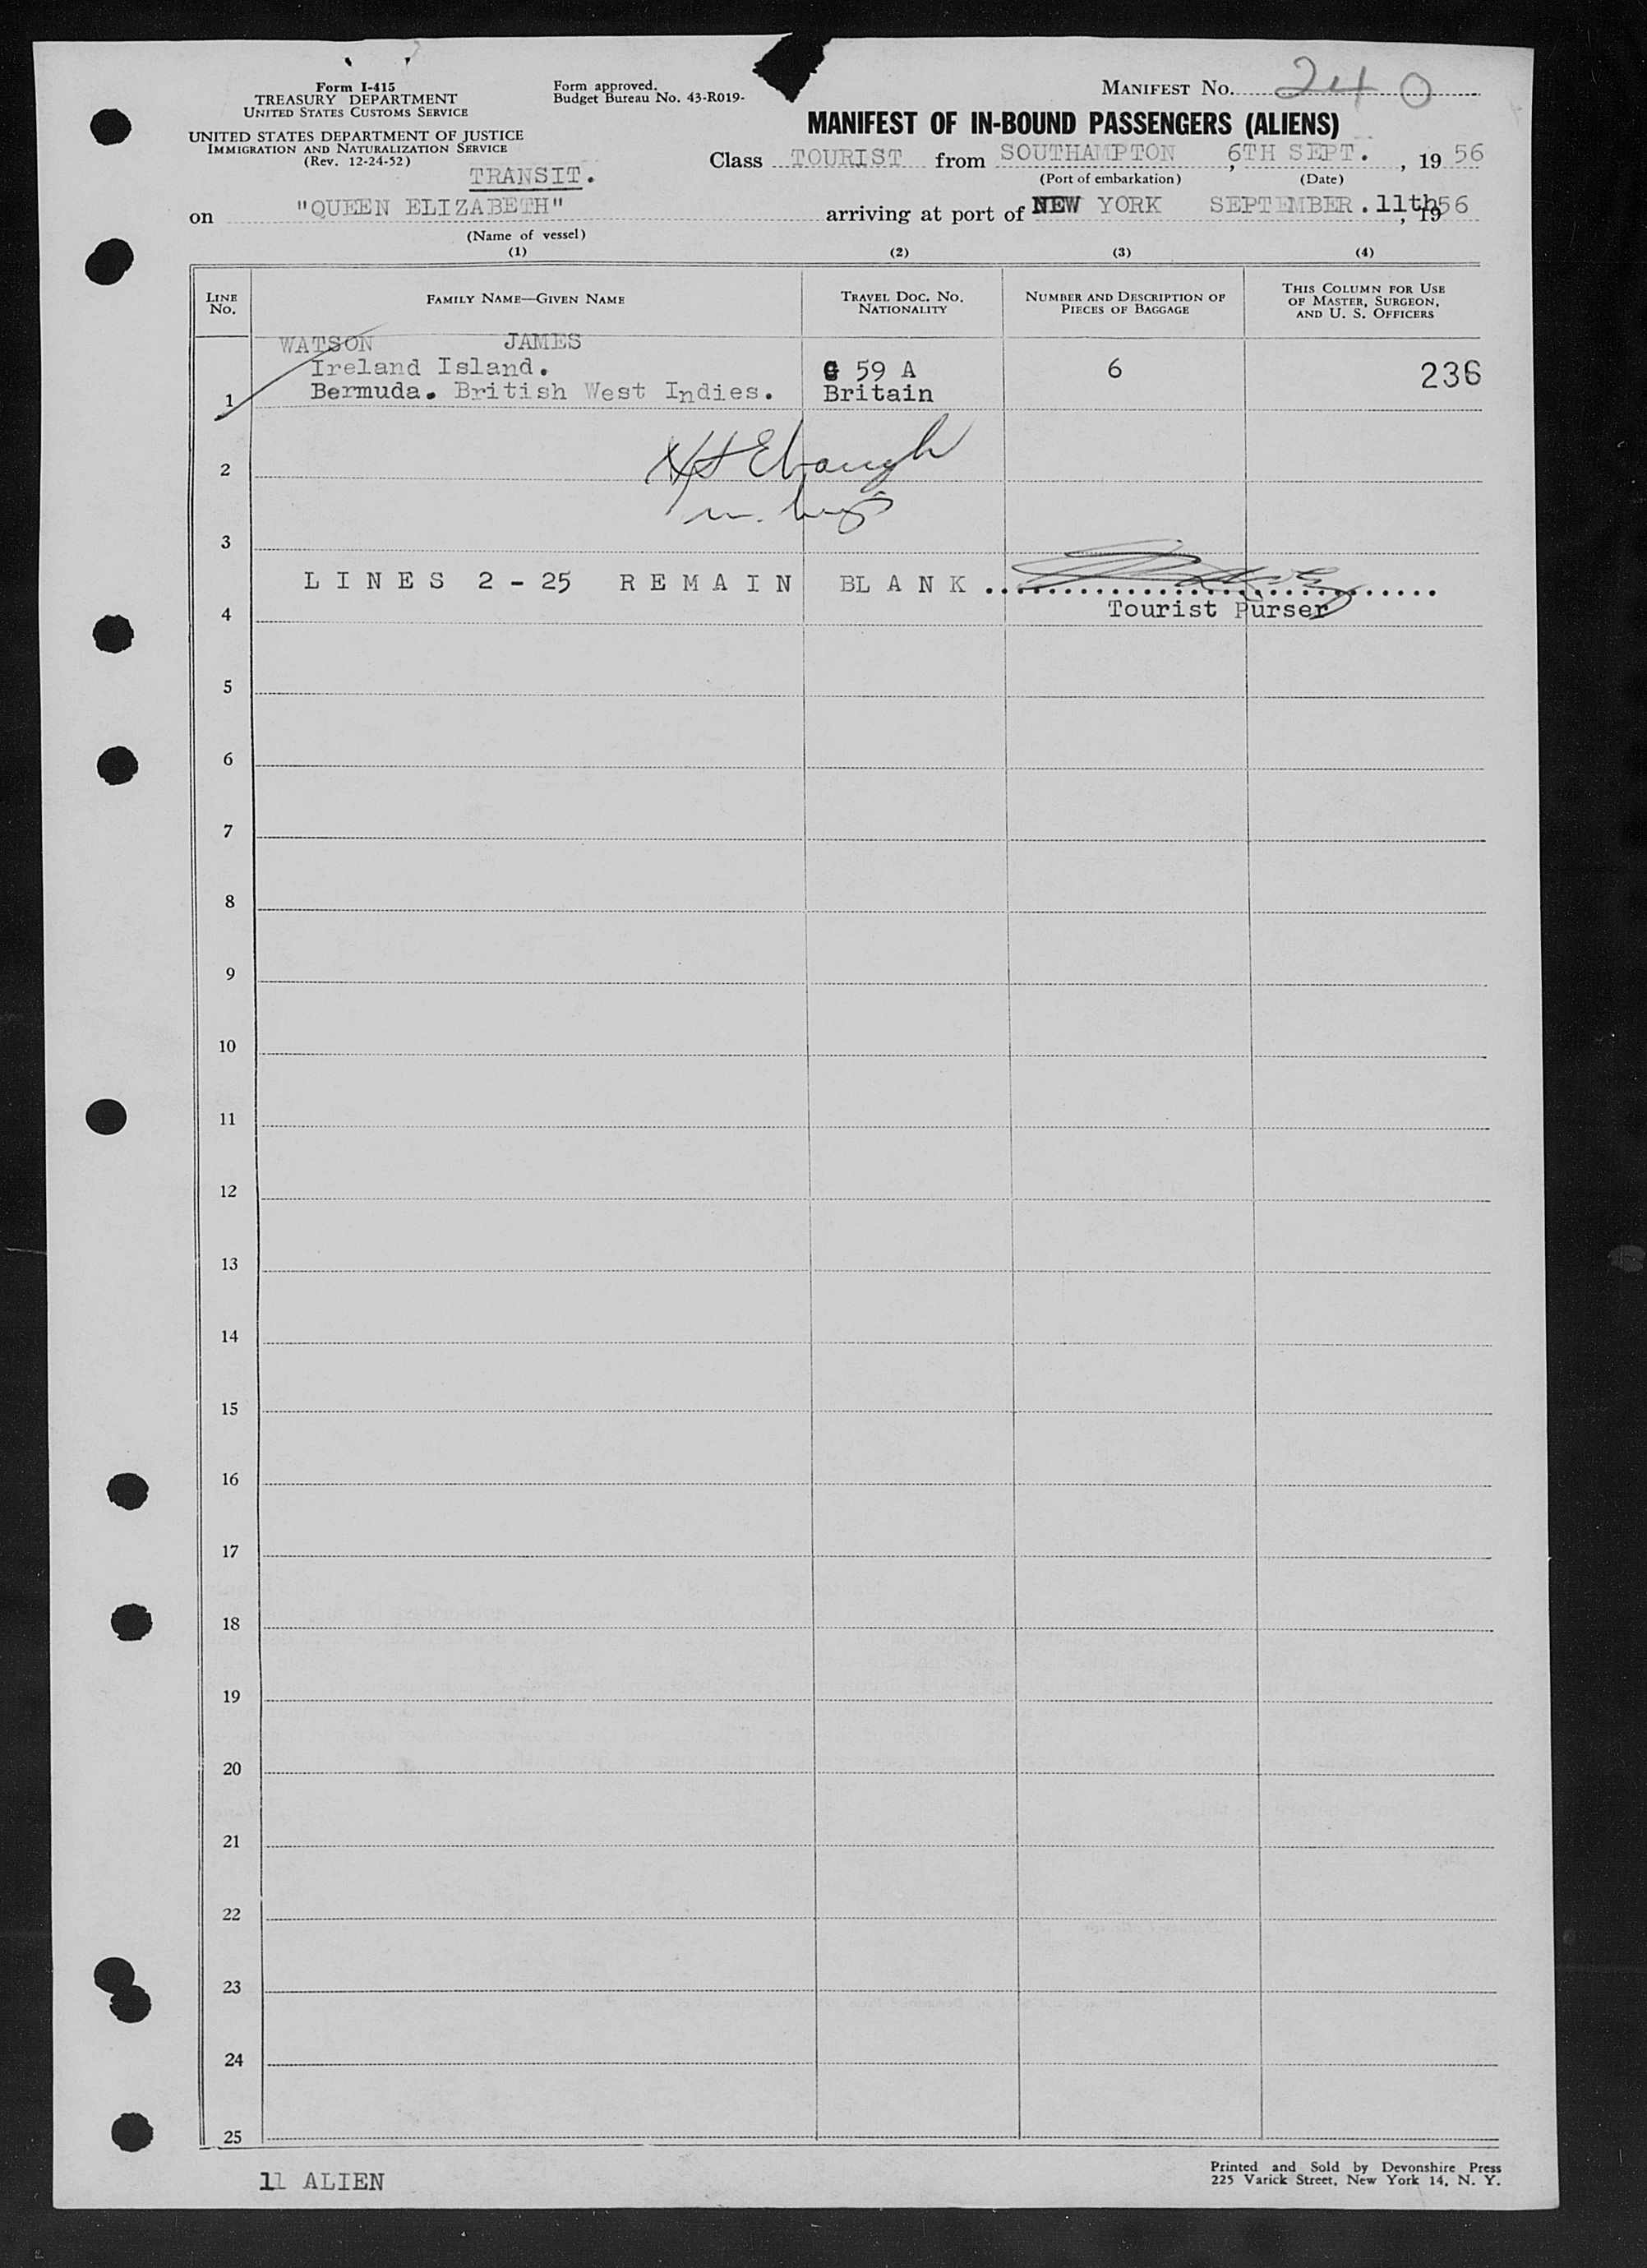 Form I-415
TREASURY DEPARTMENT
UNITED STATES CUSTOMS SERVICE
UNITED STATES DEPARTMENT OF JUSTICE
IMMIGRATION AND NATURALIZATION SERVICE
(Rev. 12-24-52)
Form approved.
Budget Bureau No. 43-R019-
MANIFEST NO. 240
MANIFEST OF IN-BOUND PASSENGERS (ALIENS)
Class TOURIST from SOUTHAMPTON, 6TH SEPT., 19 56
(Port of embarkation) (Date)
TRANSIT.
on "QUEEN ELIZABETH" arriving at port of NEW YORK SEPTEMBER.11th, 1956
(Name of vessel)
(1) (2) (3) (4)
LINE NO. FAMILY NAME—GIVEN NAME TRAVEL DOC. NO. NATIONALITY NUMBER AND DESCRIPTION OF PIECES OF BAGGAGE THIS COLUMN FOR USE OF MASTER, SURGEON, AND U. S. OFFICERS
WATSON JAMES
Ireland Island. 59 A 6 236
1 Bermuda. British West Indies. Britain
2
3
LINES 2-25 REMAIN BLANK
4 Tourist Purser
5
6
7
8
9
10
11
12
13
14
15
16
17
18
19
20
21
22
23
24
25
11 ALIEN
Printed and Sold by Devonshire Press
225 Varick Street, New York 14, N. Y.